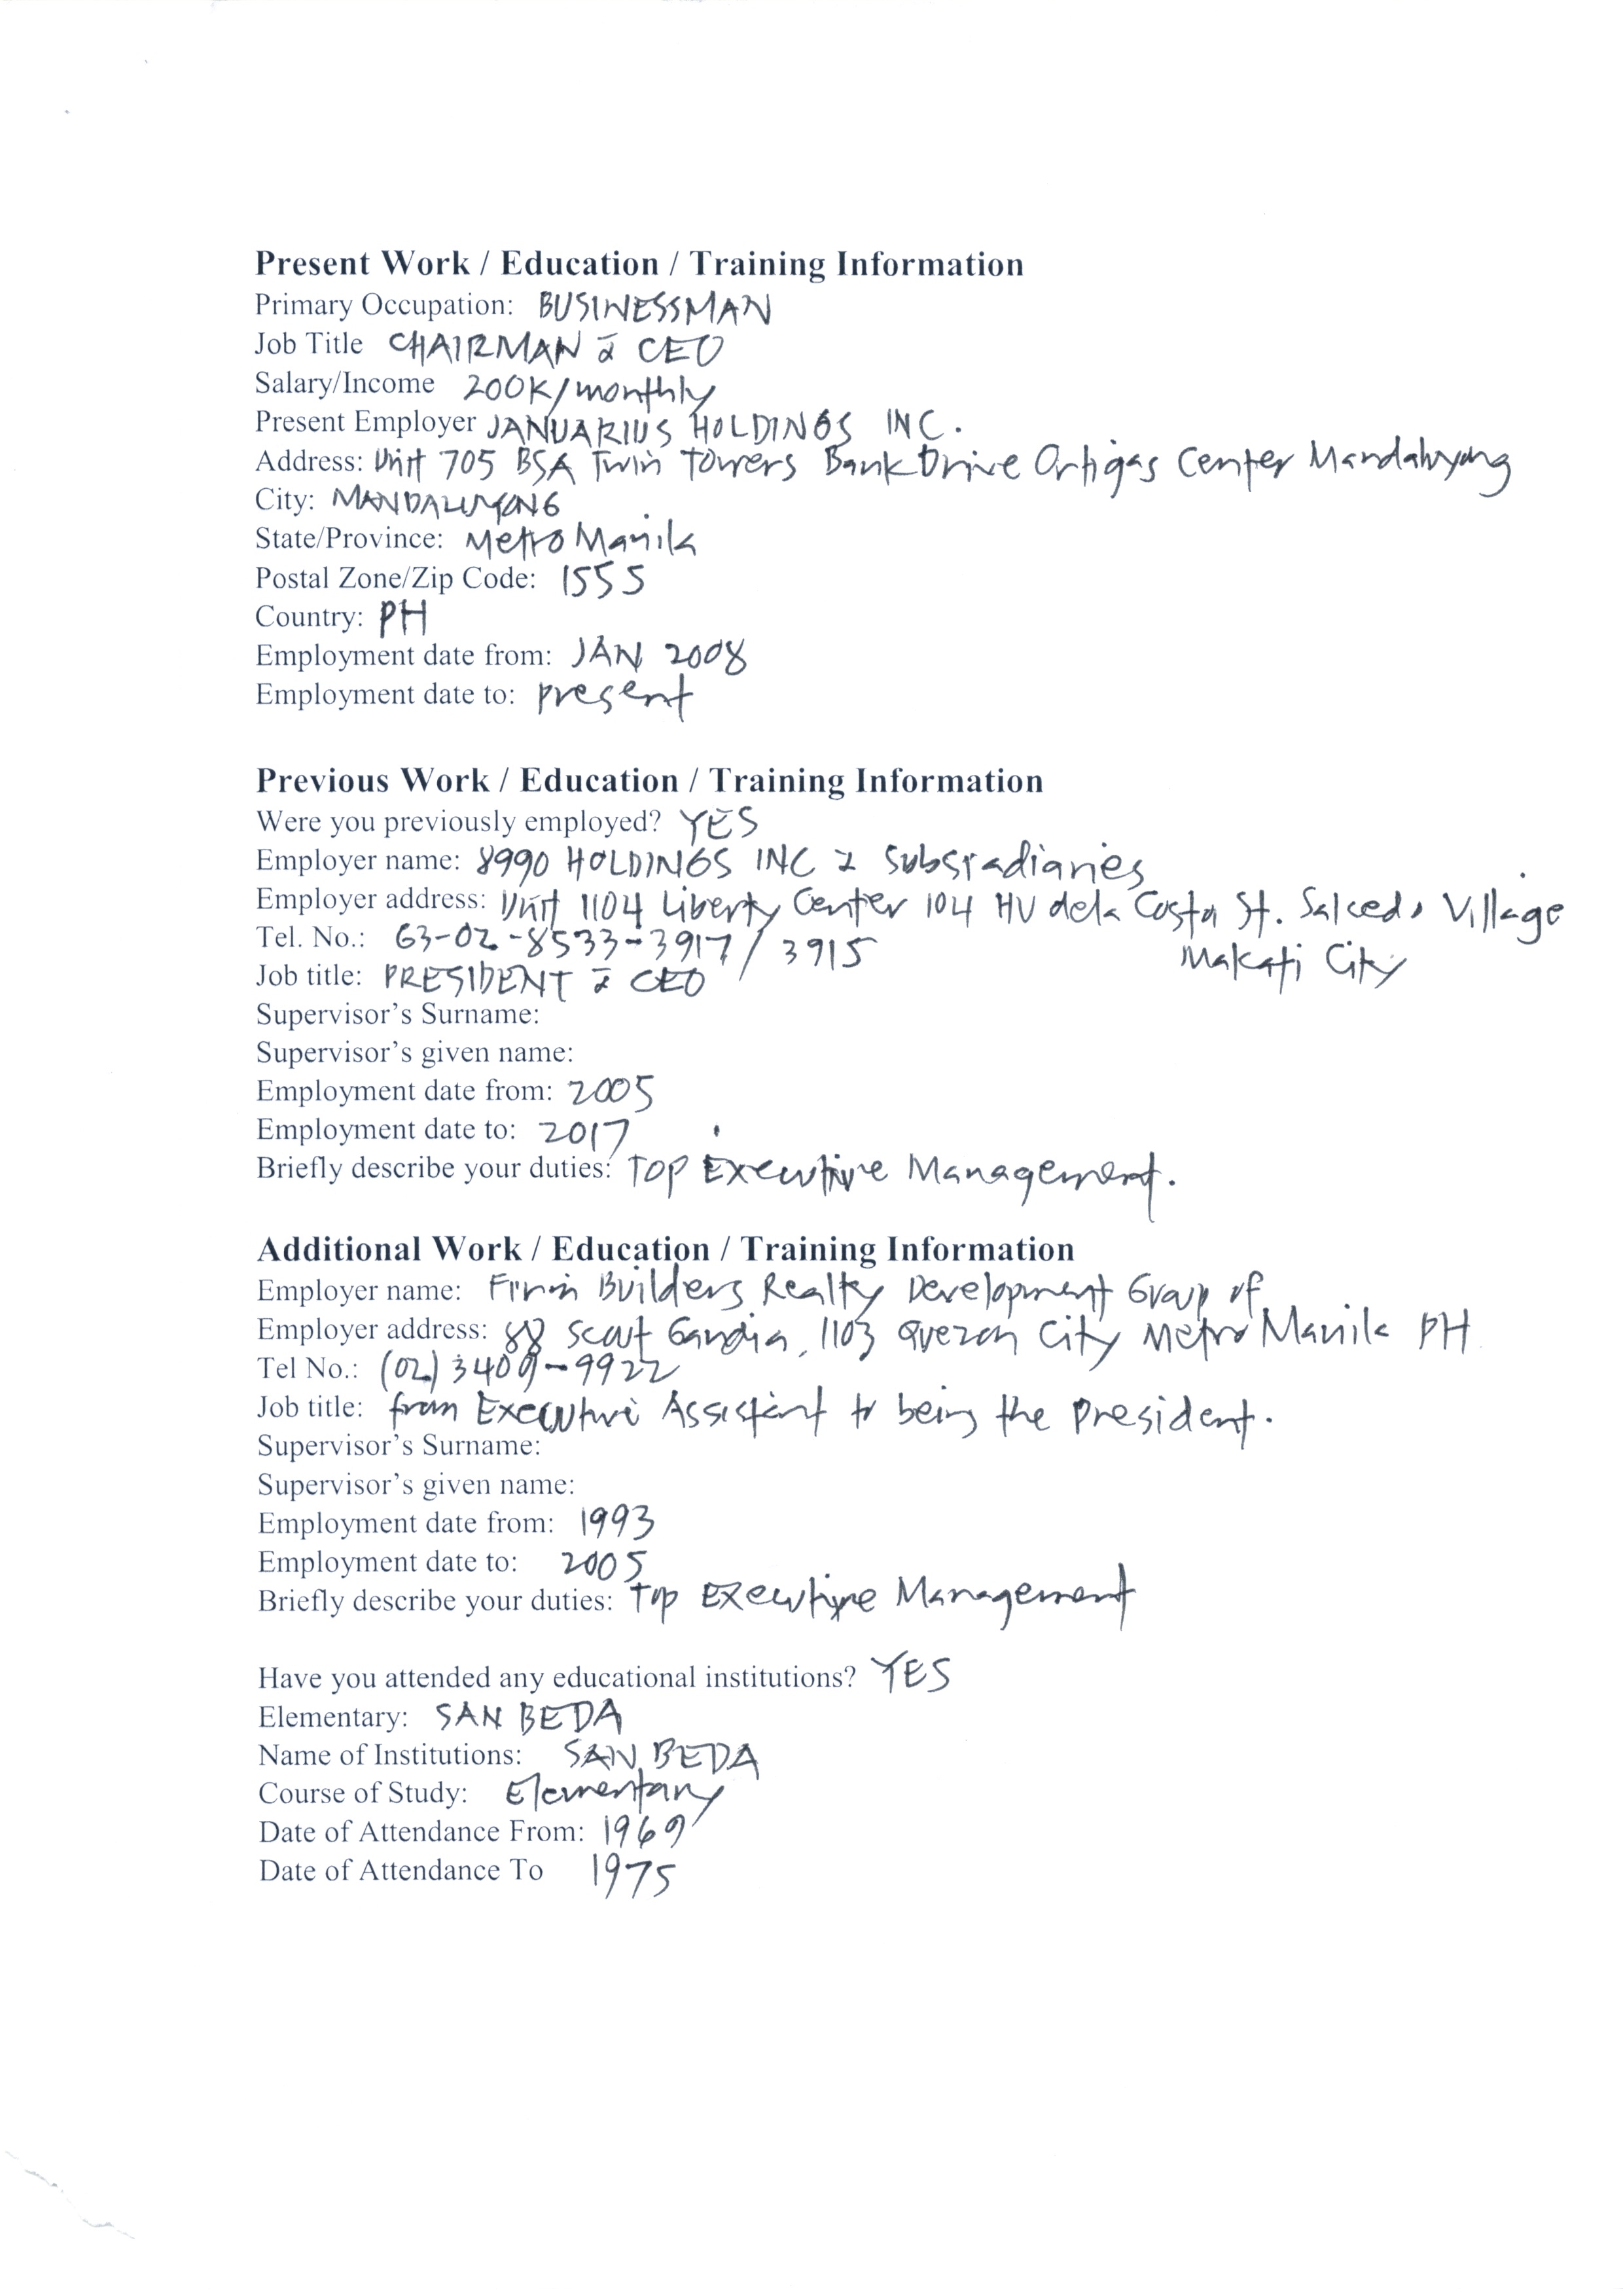 Present Work / Education / Training Information
Primary Occupation: BUSINESSMAN
Job Title CHAIRMAN & CEO
Salary/Income 200K/monthly
Present Employer JANUARIUS HOLDINGS INC.
Address: Unit 705 BSA Twin Towers Bank Drive Ortigas Center Mandaluyong
City: MANDALUYONG
State/Province: Metro Manila
Postal Zone/Zip Code: 1555
Country: PH
Employment date from: JAN 2008
Employment date to: present
Previous Work / Education / Training Information
Were you previously employed? YES
Employer name: 8990 HOLDINGS INC & Subsradiaries
Employer address: Unit 1104 Liberty Center 104 HV dela Costa St. Salcedo Village
Makati City
Tel. No.: 63-02-8533-3917 / 3915
Job title: PRESIDENT & CEO
Supervisor's Surname:
Supervisor's given name:
Employment date from: 2005
Employment date to: 2017
Briefly describe your duties: Top Executive Management.
Additional Work / Education / Training Information
Employer name: Builders Realty Development Group of
Employer address: 88 Scout Gandia, 1103 Quezon City Metro Manila PH
Tel No.: (02) 3409-9922
Job title: from Executive Assistant to being the president.
Supervisor's Surname:
Supervisor's given name:
Employment date from: 1993
Employment date to: 2005
Briefly describe your duties: Top Executive Management
Have you attended any educational institutions? YES
Elementary: SAN BEDA
Name of Institutions: SAN BEDA
Course of Study: Elementary
Date of Attendance From: 1969
Date of Attendance To 1975